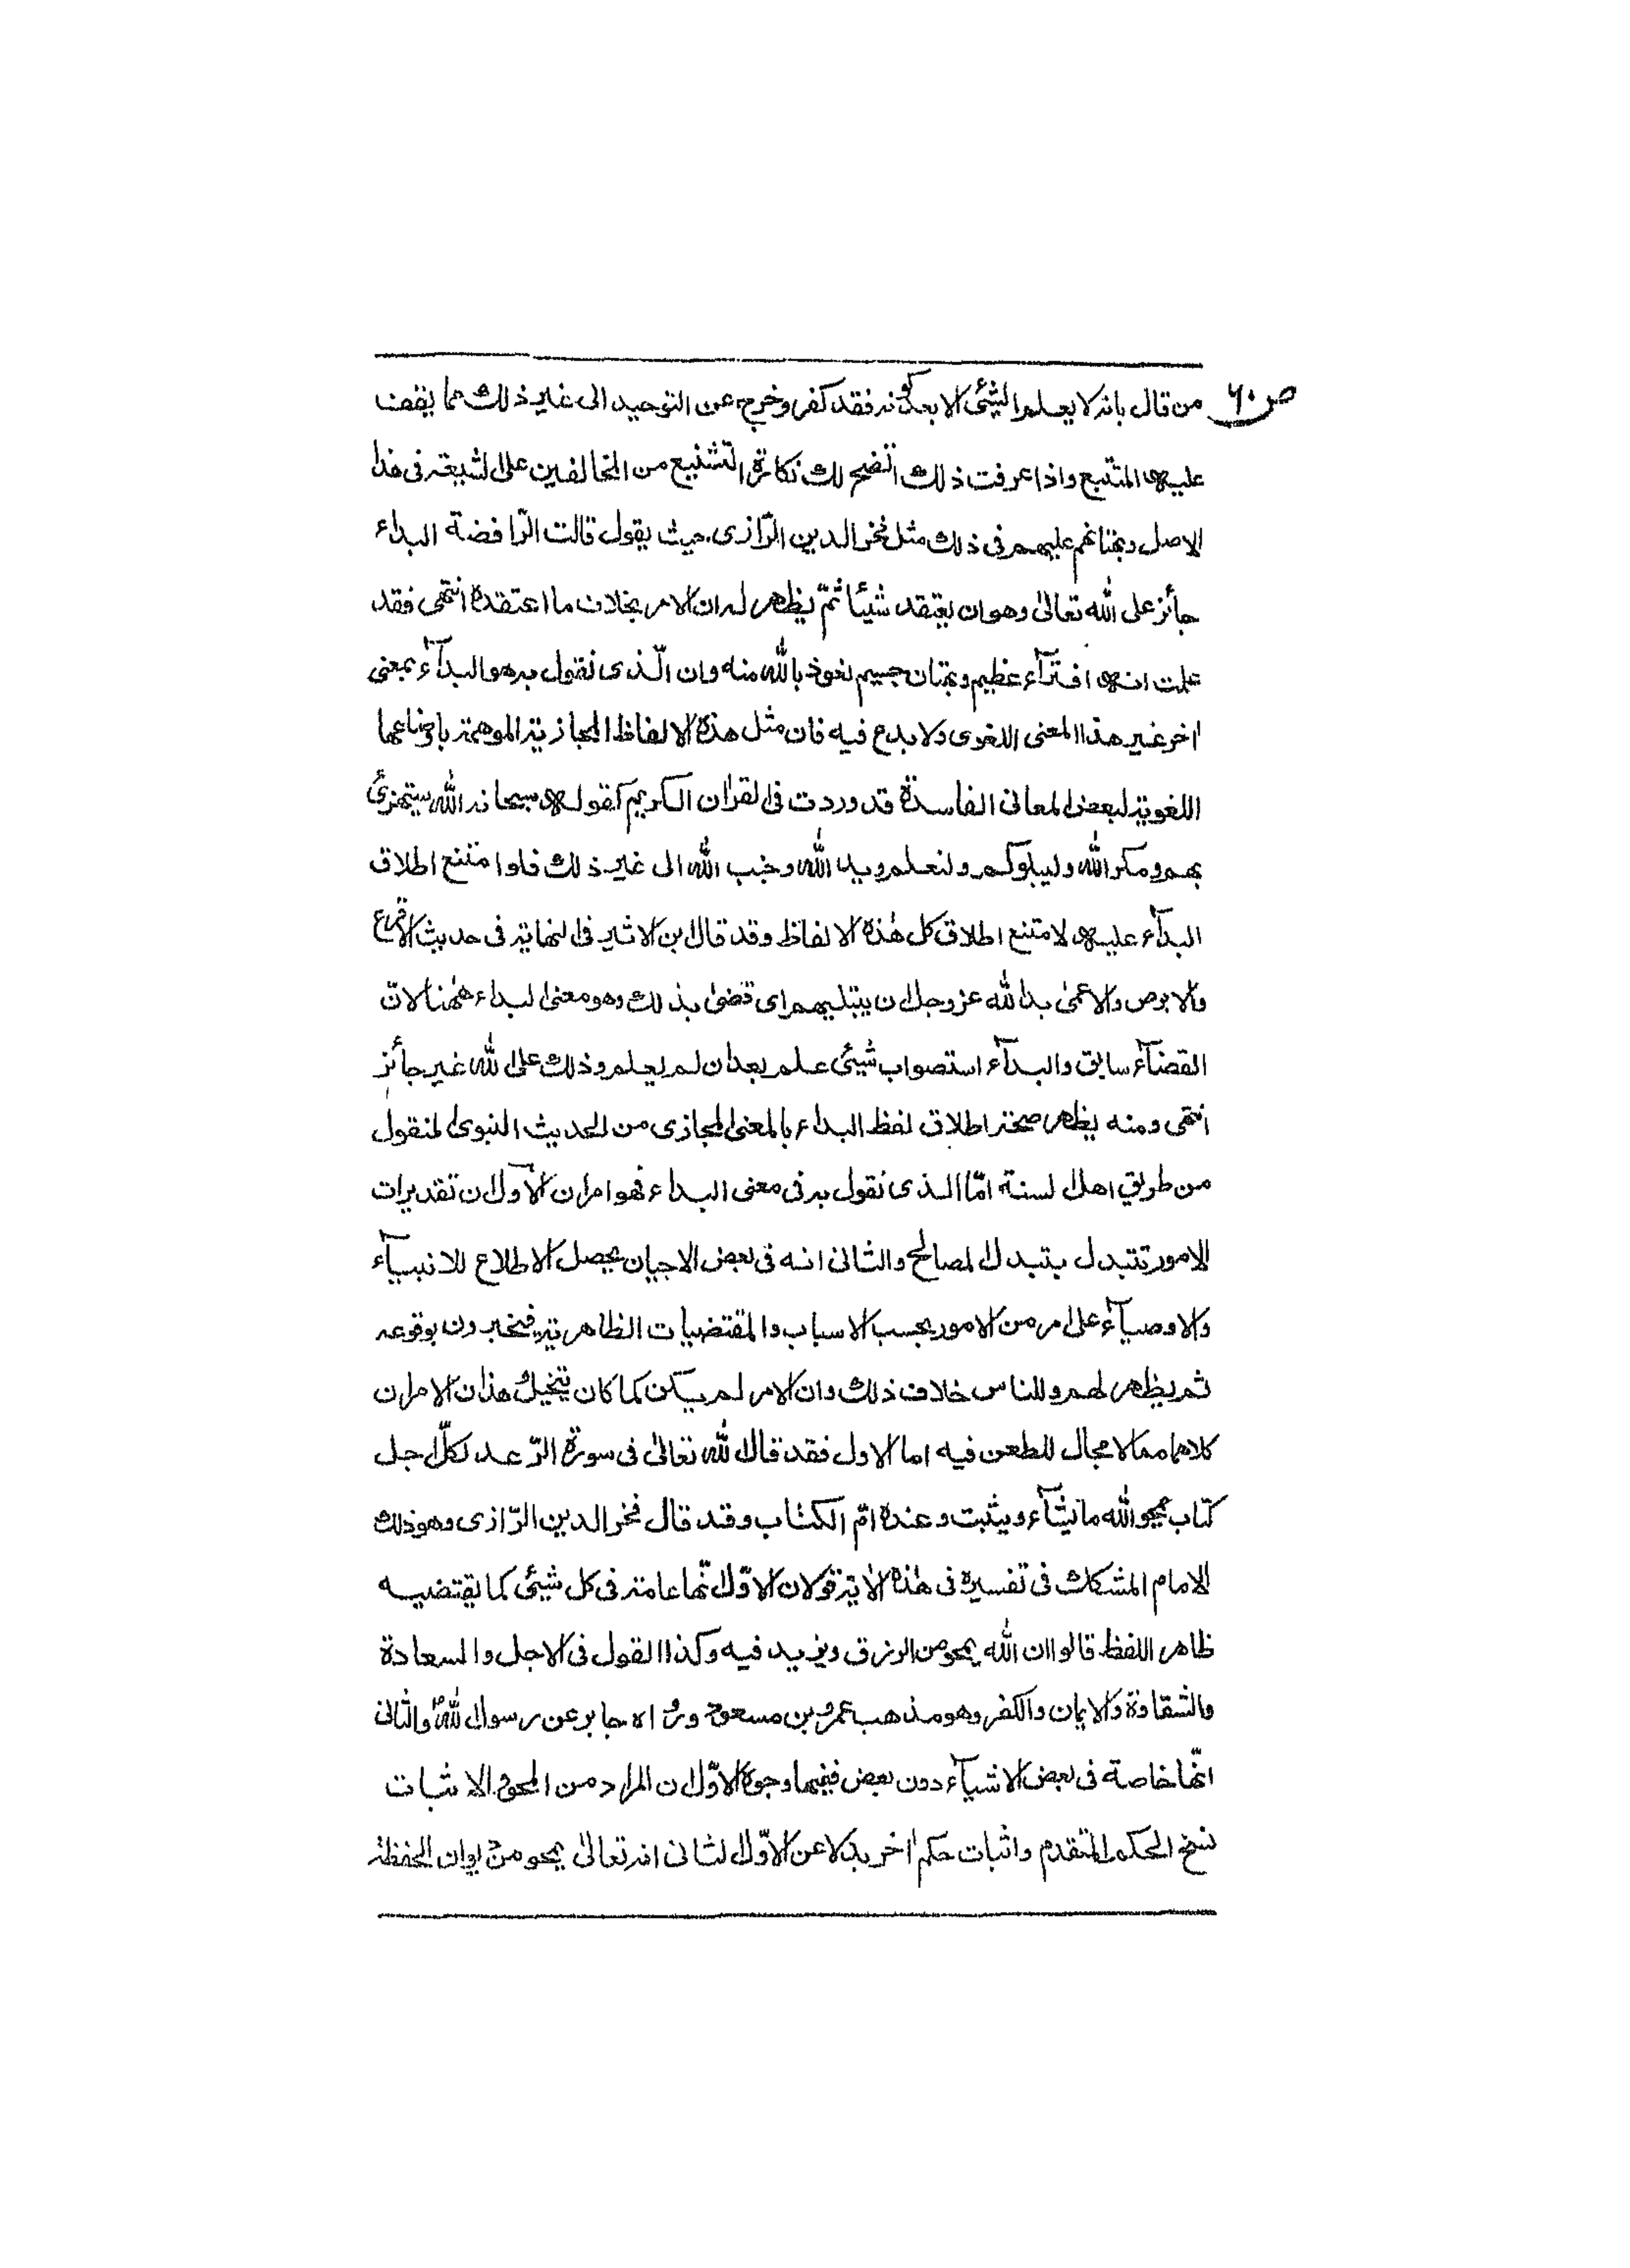 ص ٦٠
من قال بانه لا يعلم الشئى الا بعد كونه فقد كفر وخرج عن التوحيد الى غير ذلك مما يقف
عليه المتتبع واذا عرفت ذلك اتضح لك نكاتة التشنيع من المخالفين على الشيعة فى هذا
الاصل وبهتانهم عليهم فى ذلك مثل فخر الدين الرّازى حيث يقول قالت الرّافضة البداء
جائز على الله تعالىٰ وهو ان يعتقد شيئًا ثمّ يظهر له ان الامر بخلاف ما اعتقده انتهى فقد
علمت انه افترآء عظيم وبهتان جسيم نعوذ بالله منه وان الّذى نقول به هو البدآء بمعنى
اخر غير هذا المعنى اللغوى ولا بدع فيه فان مثل هذه الالفاظ المجازية الموهمة باوضاعها
اللغوية لبعض المعانى الفاسدة قد وردت فى القران الكريم كقوله سبحانه الله يستهزئ
بهم ومكر الله وليبلوكم ولنعلم ويد الله وجنب الله الى غير ذلك فلو امتنع اطلاق
البدآء عليه لامتنع اطلاق كل هٰذه الالفاظ وقد قال ابن الاثير فى النهاية فى حديث الاقرع
والابرص والاعمىٰ بدا لله عز وجل ان يبتليهم اى قضىٰ بذلك وهو معنى البداء هٰهنا لانّ
القضآء سابق والبدآء استصواب شئى علم بعد ان لم يعلم وذلك على الله غير جائز
انتهى ومنه يظهر صحة اطلاق لفظ البداء بالمعنى المجازى من الحديث النبوى المنقول
من طريق اهل السنة امّا الذى نقول به فى معنى البداء فهو امران الاول ان تقديرات
الامور تتبدل بتبدل المصالح والثانى انه فى بعض الاحيان يحصل الاطلاع للانبيآء
والاوصيآء على امر من الامور بحسب الاسباب والمقتضيات الظاهرية فيخبرون بوقوعه
ثم يظهر لهم وللناس خلاف ذلك وان الامر لم يكن كما كان يتخيل هذان الامران
كلاهما مما لا مجال للطعن فيه اما الاول فقد قال الله تعالىٰ فى سورة الرّعد لكلّ اجل
كتاب يمحو الله ما يشآء ويثبت وعنده امّ الكتاب وقد قال فخر الدين الرّازى وهو ذلك
الامام المشكك فى تفسيره فى هٰذه الاية قولان الاوّل انّها عامة فى كل شئى كما يقتضيه
ظاهر اللفظ قالوا ان الله يمحو من الرزق ويزيد فيه وكذا القول فى الاجل والسعادة
والشقاوة والايمان والكفر وهو مذهب عمر وبن مسعود ورواه جابر عن رسول اللهؐ والثانى
انّها خاصة فى بعض الاشيآء دون بعض ففيها وجوه الاوّل ان المراد من المحو والاثبات
نسخ الحكم المتقدم واثبات حكم اخر بدلا عن الاوّل الثانى انه تعالىٰ يمحو من ديوان الحفظة